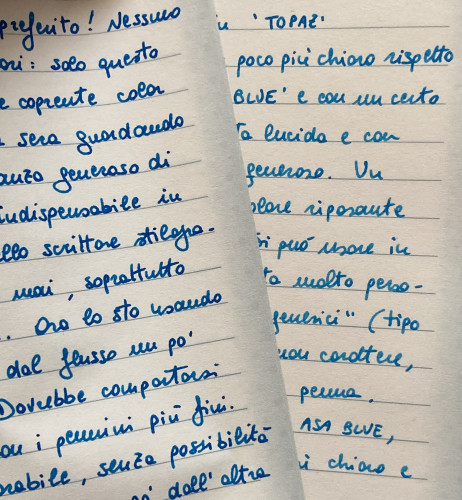 preferito! Nessuno
ori: solo questo
e coprente color
sera guardando
anza generoso di
indispensabile in
ello scrittore stilogra-
mai, soprattutto
.. Ora lo sto usando
dal flusso un po'
Dovrebbe comportarsi
on i pennini più fini.
rabile, senza possibilità
dall'altra
'TOPAZ'
poco più chiaro rispetto
BLUE' e con un certo
ta lucida e con
generoso. Un
olore riposante
si può usare in
ta molto perso-
generici" (tipo
non carattere,
penna.
ASA BLUE,
i chiaro e